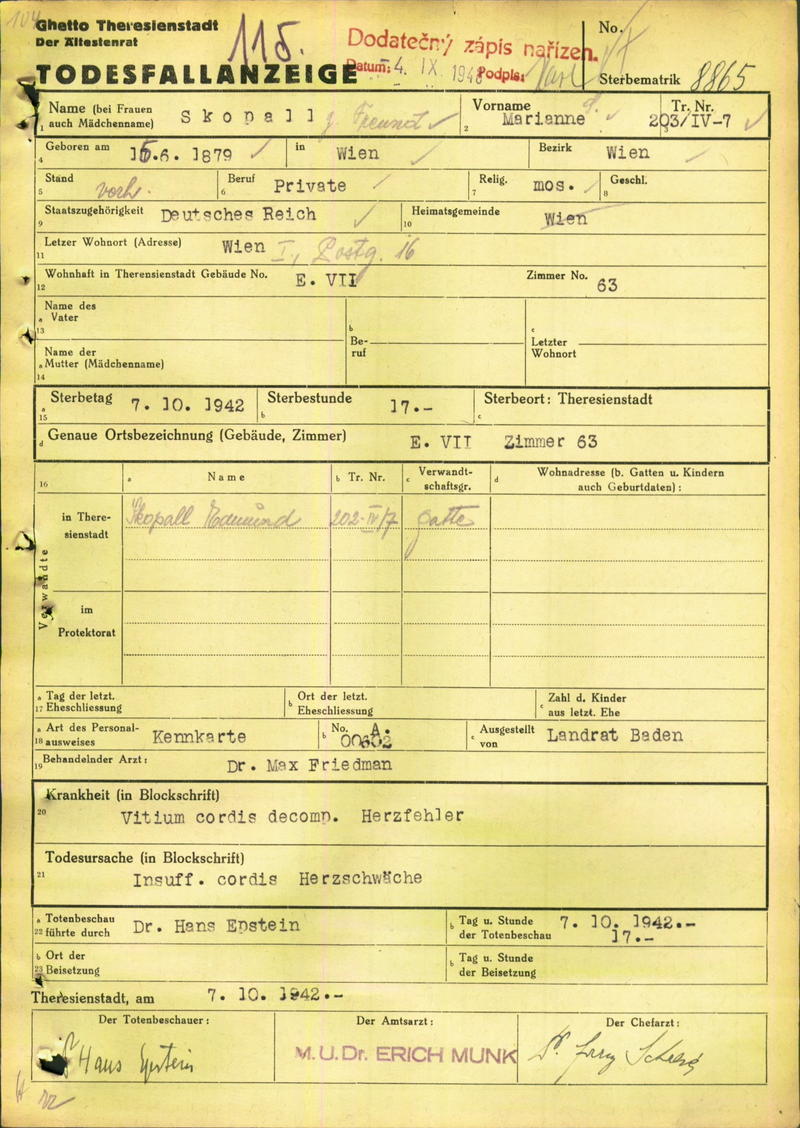 104
Ghetto Theresienstadt
Der Ältestenrat
115.
Dodatečný zápis nařízen.
Datum: 4. IX. 1948 Podpis:
No.
TODESFALLANZEIGE
Sterbematrik 8865
Name (bei Frauen auch Mädchenname) Skopall g. Freund
1
Vorname Marianne S.
2
Tr. Nr. 203/IV-7
3
Geboren am 15.6. 1879 in Wien Bezirk Wien
4
Stand verh. Beruf Private Relig. mos. Geschl.
5 6 7 8
Staatszugehörigkeit Deutsches Reich Heimatsgemeinde Wien
9 10
Letzer Wohnort (Adresse) Wien I., Postg. 16
11
Wohnhaft in Therensienstadt Gebäude No. E. VII Zimmer No. 63
12
Name des
a Vater
13
b
Be-
ruf
c
Letzter
Wohnort
Name der
a Mutter (Mädchenname)
14
a Sterbetag 7. 10. 1942 Sterbestunde 17.- Sterbeort: Theresienstadt
15 b c
d Genaue Ortsbezeichnung (Gebäude, Zimmer) E. VII Zimmer 63
16 a Name b Tr. Nr. c Verwandt-
schaftsgr. d Wohnadresse (b. Gatten u. Kindern
auch Geburtdaten) :
Verwandte
in There-
sienstadt
Skopall Edmund 202-IV/7 Gatte
im
Protektorat
a Tag der letzt.
17 Eheschliessung
b Ort der letzt.
Eheschliessung
c Zahl d. Kinder
aus letzt. Ehe
a Art des Personal-
18 ausweises Kennkarte
b No. A.
00602
c Ausgestellt
von Landrat Baden
Behandelnder Arzt: Dr. Max Friedman
19
Krankheit (in Blockschrift)
20 Vitium cordis decomp. Herzfehler
Todesursache (in Blockschrift)
21 Insuff. cordis Herzschwäche
a Totenbeschau
22 führte durch Dr. Hans Epstein
b Tag u. Stunde
der Totenbeschau 7. 10. 1942.-
17.-
b Ort der
23 Beisetzung
b Tag u. Stunde
der Beisetzung
Theresienstadt, am 7. 10. 1942.-
Der Totenbeschauer:
Hans Epstein
Der Amtsarzt:
M.U.Dr. ERICH MUNK
Der Chefarzt: